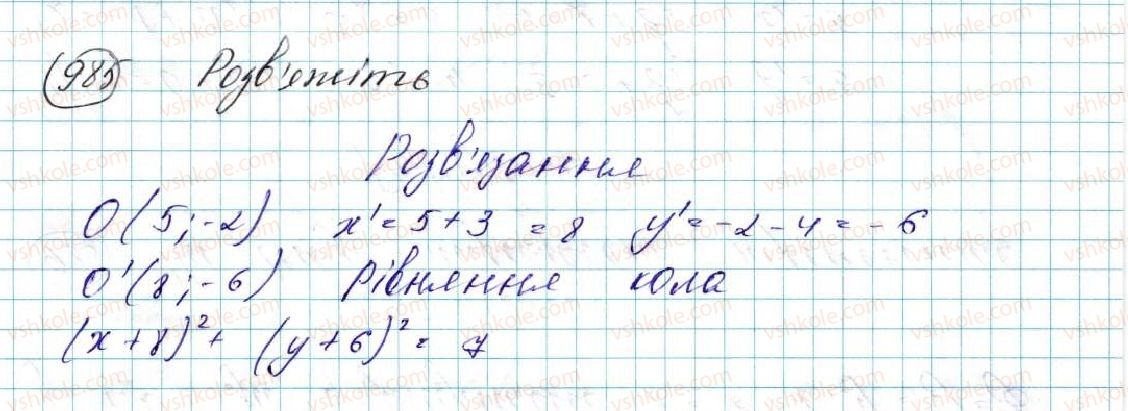 985 Розв'яжіть
Розв'язання
O(5;-2) x'=5+3 =8 y'=-2-4=-6
O'(8;-6) Рівняння кола
(x+8)²+ (y+6)²= 7